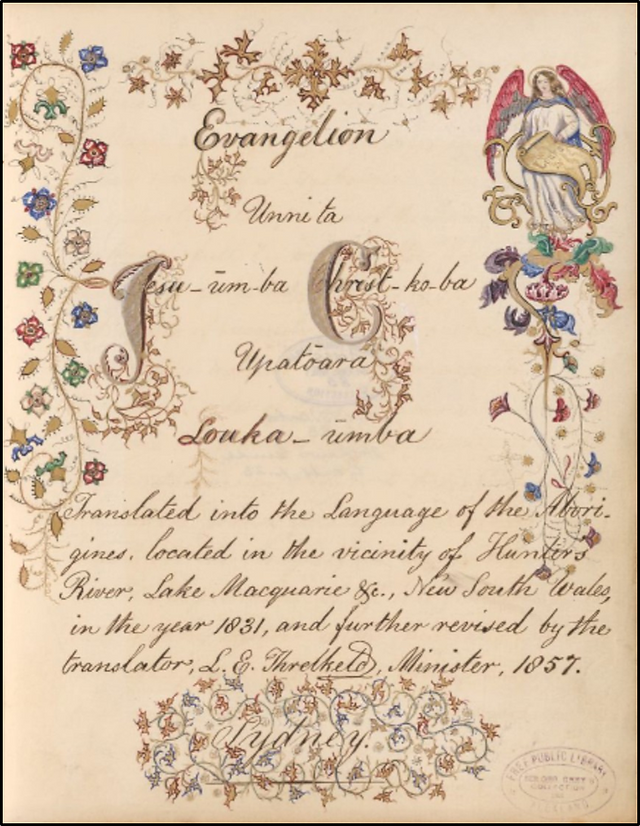 Evangelion
Unni ta
Jesu-ūm-ba Christ-ko-ba
Upatōara
Louka-ūmba
Translated into the Language of the Abori-
gines, located in the vicinity of Hunter's
River, Lake Macquarie &c., New South Wales,
in the year 1831, and further revised by the
translator, L. E. Threlkeld, Minister, 1857.
Sydney.
FREE PUBLIC LIBRARY
AUCKLAND.